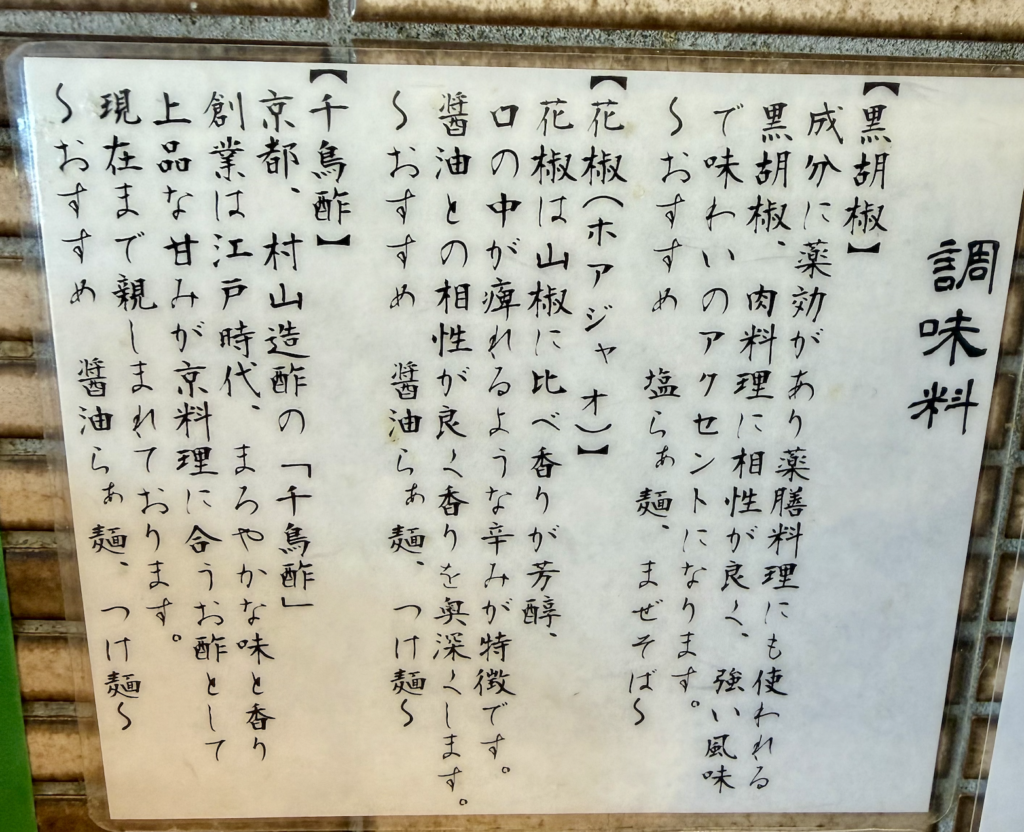 調味料
【黒胡椒】
成分に薬効があり薬膳料理にも使われる
黒胡椒、肉料理に相性が良く、強い風味
で味わいのアクセントになります。
～おすすめ　塩らぁ麺、まぜそば～
【花椒(ホアジャオ)】
花椒は山椒に比べ香りが芳醇、
口の中が痺れるような辛みが特徴です。
醤油との相性が良く香りを奥深くします。
～おすすめ　醤油らぁ麺、つけ麺～
【千鳥酢】
京都、村山造酢の「千鳥酢」
創業は江戸時代、まろやかな味と香り
上品な甘みが京料理に合うお酢として
現在まで親しまれております。
～おすすめ　醤油らぁ麺、つけ麺～